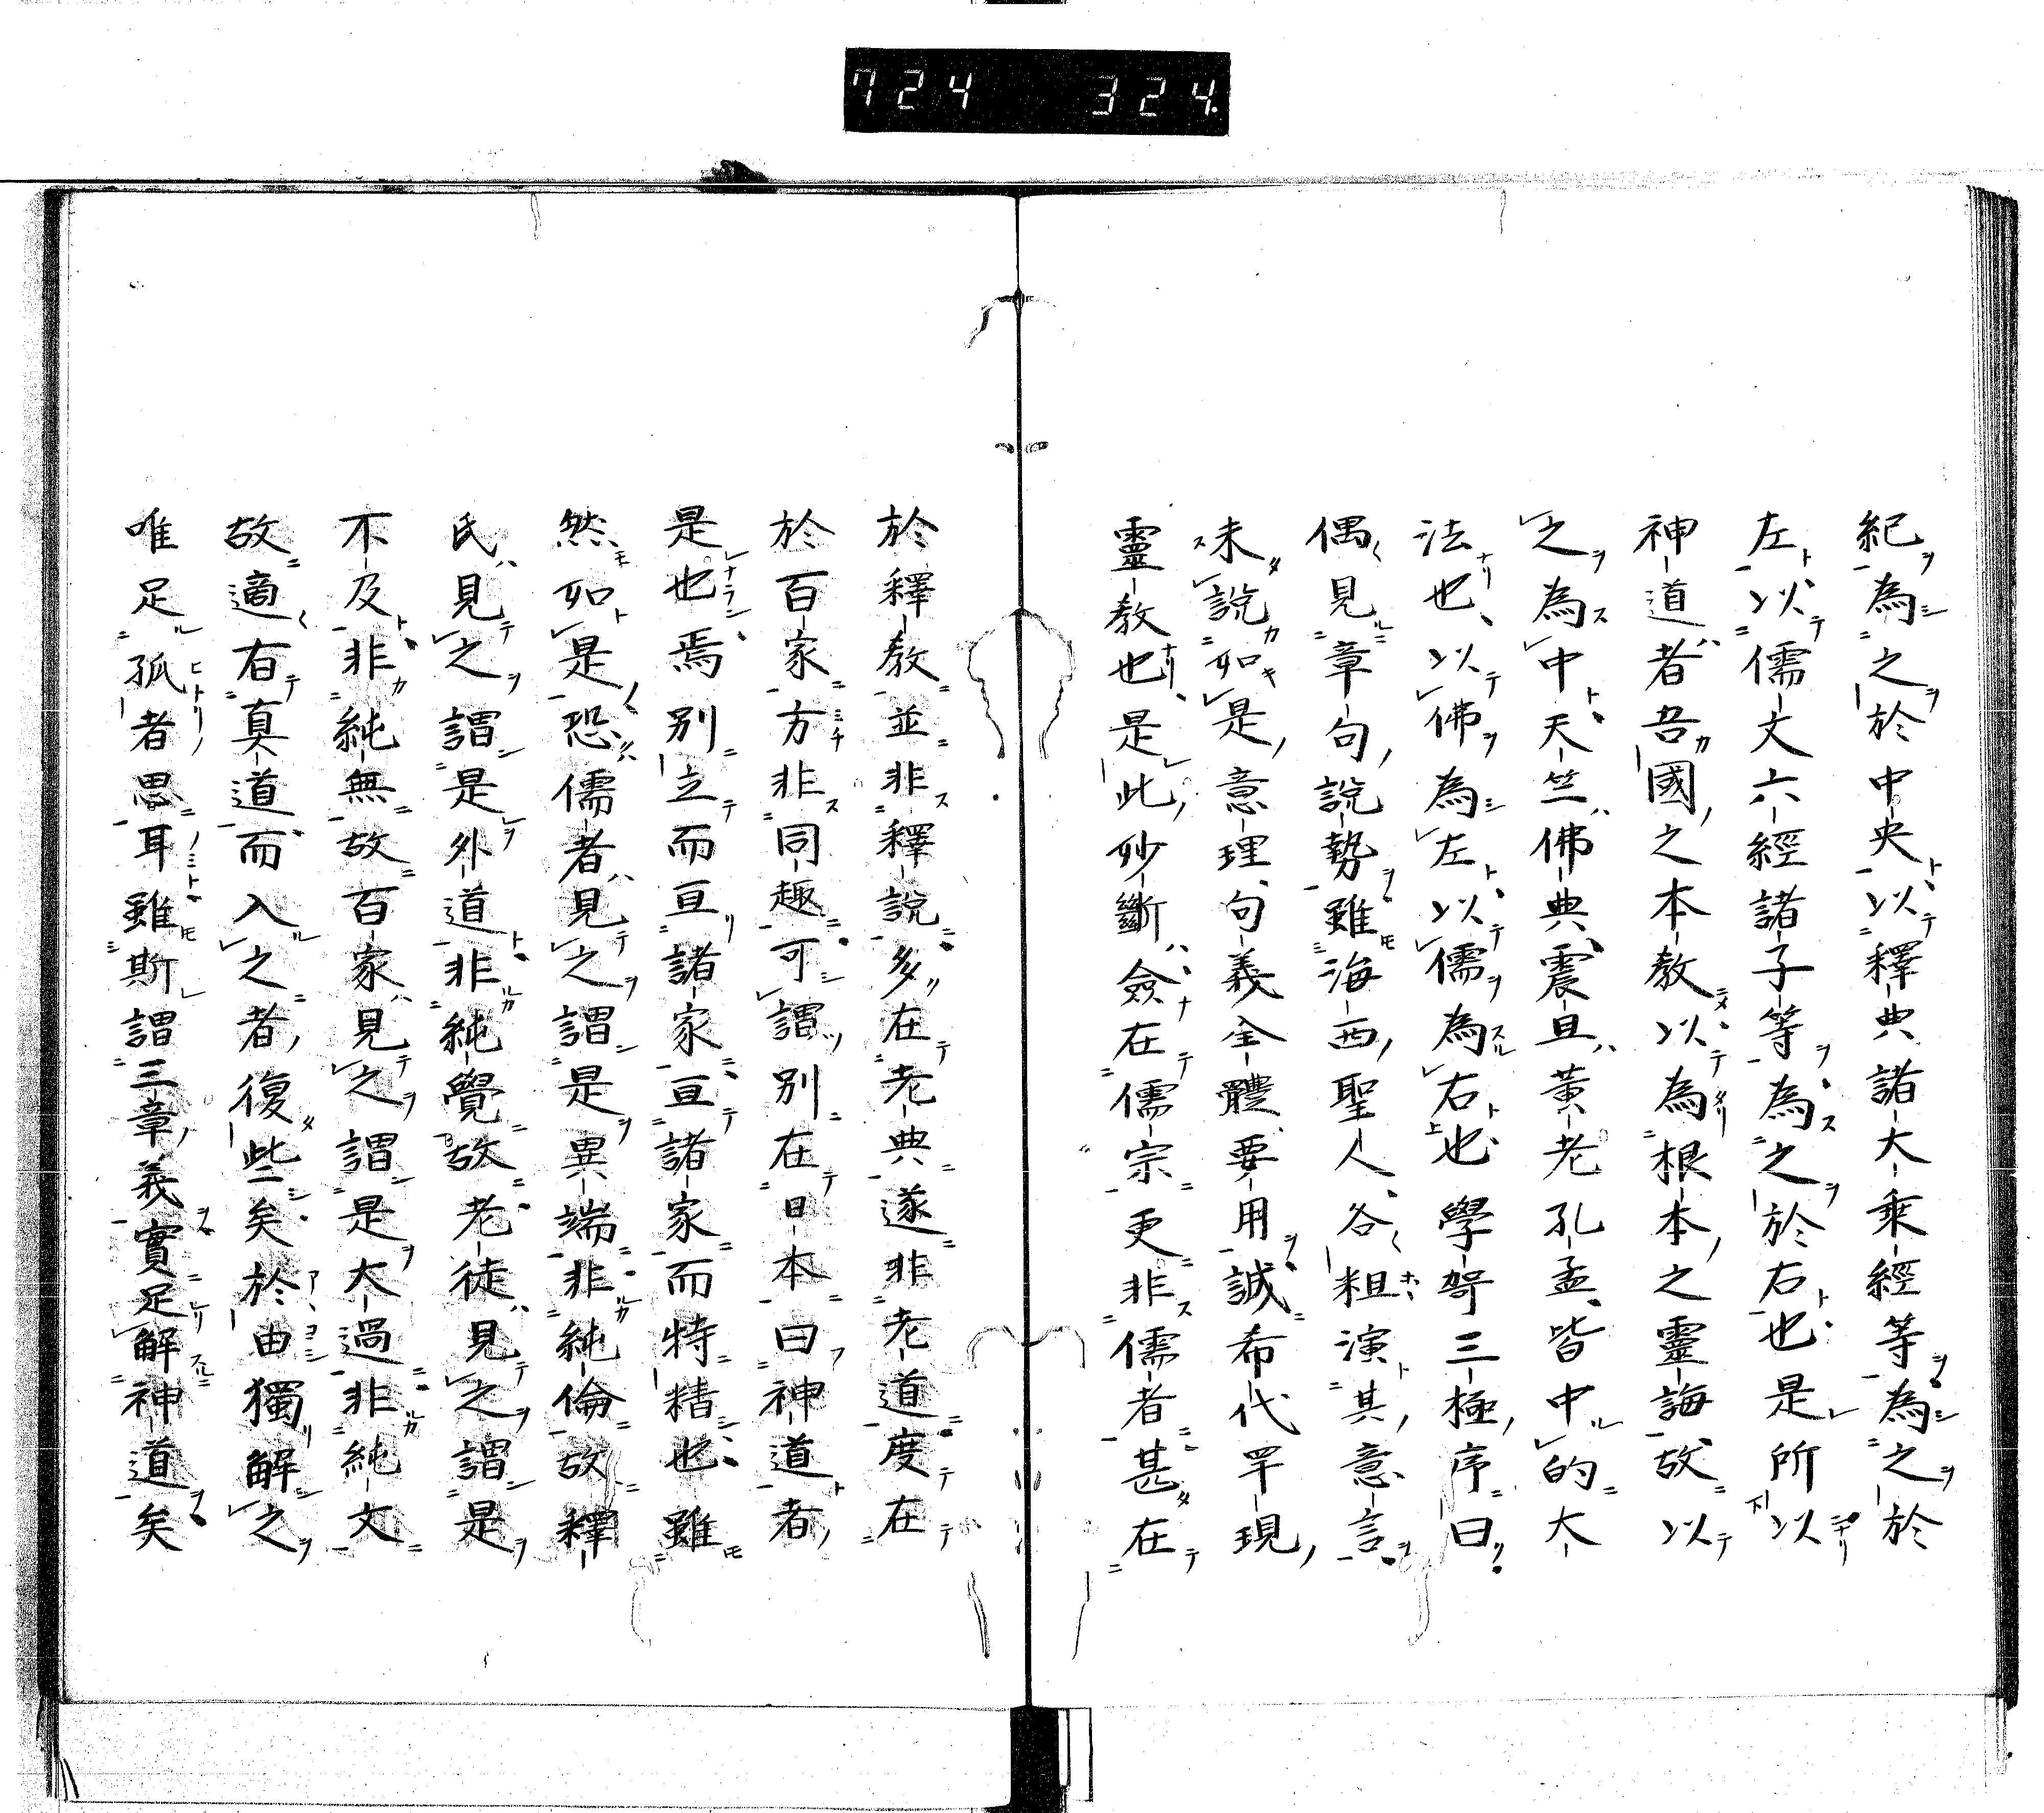 724 324
紀為之於中央以釋典諸大乘經等為之於
左以儒文六經諸子等為之於右也是所以
神道者吾國之本教以為根本之靈誨故以
之為中天竺佛典震旦黃老孔孟皆中的大
法也以佛為左以儒為右也學哿三極序曰
偶見章句說勢雖海西聖人各粗演其意言
未說如是意理句義全體要用誠希代罕現
靈教也是此妙斷僉在儒宗更非儒者甚在
於釋教並非釋說多在老典遂非老道度在
於百家方非同趣可謂別在日本曰神道者
是也焉別立而亘諸家亘諸家而特精也雖
然如是恐儒者見之謂是異端非純倫故釋
氏見之謂是外道非純覺故老徒見之謂是
不及非純無故百家見之謂是大過非純文
故適右真道而入之者復些矣於由獨解之
唯足孤者思耳雖斯謂三章義實足解神道矣